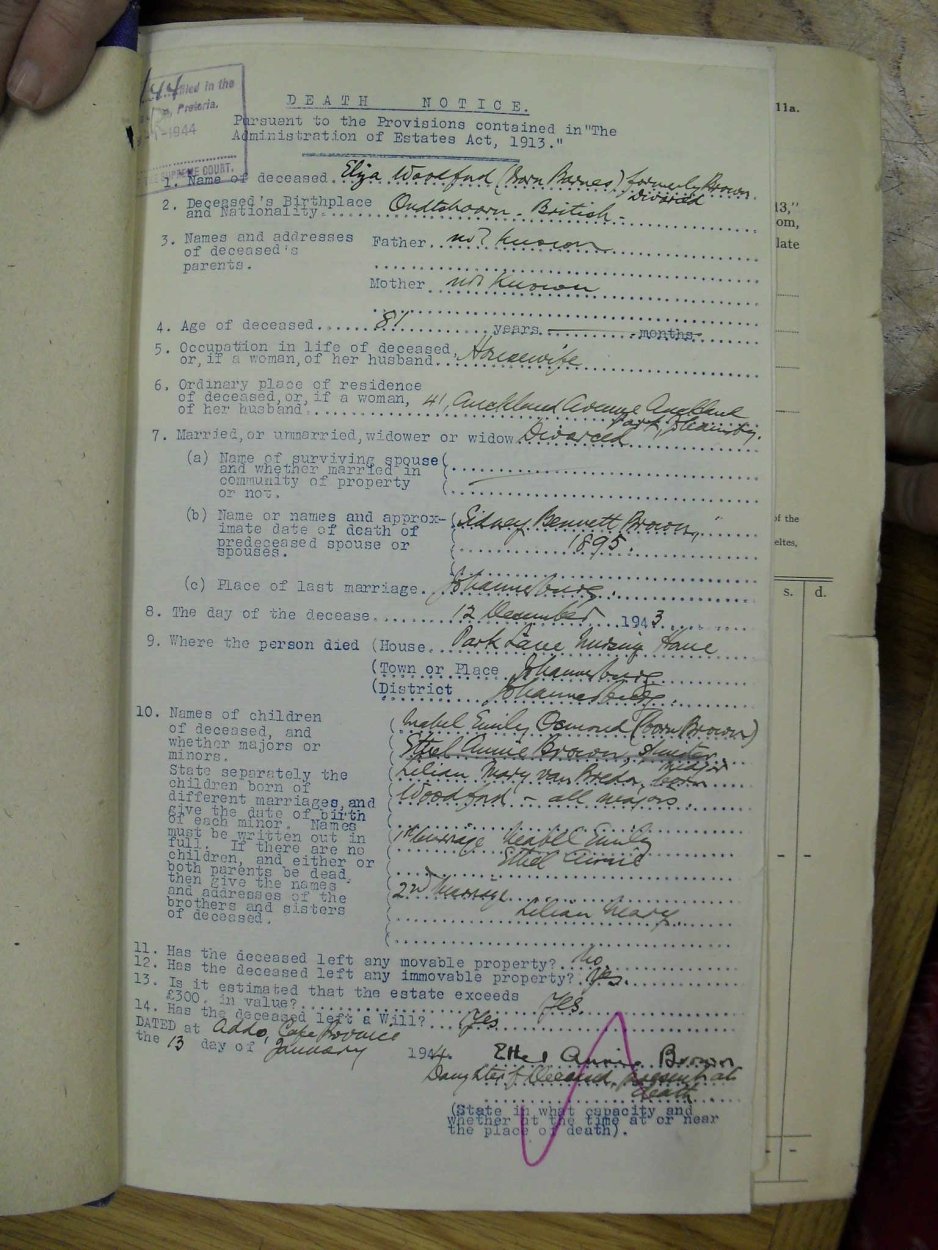 4.4. filed in the
Pretoria.
-1944
SUPREME COURT.
DEATH NOTICE.
Pursuant to the Provisions contained in "The
Administration of Estates Act, 1913."
1. Name of deceased. Eliza Woodford (Born Barnes) formerly Brown
Divorced
2. Deceased's Birthplace
and Nationality.... Oudtshoorn - British -
3. Names and addresses
of deceased's
parents.
Father. not known
Mother. not known
4. Age of deceased...... 81 years. months.
5. Occupation in life of deceased
or, if a woman, of her husband... Housewife
6. Ordinary place of residence
of deceased, or, if a woman,
of her husband. 41, Auckland Avenue Auckland
Park,
7. Married, or unmarried, widower or widow. Divorced
(a) Name of surviving spouse
and whether married in
community of property
or not.
(b) Name or names and approx-
imate date of death of
predeceased spouse or
spouses.
Sidney Bennett Brown,
1895.
(c) Place of last marriage. Johannesburg.
8. The day of the decease. 12 December 1943.
9. Where the person died (House. Park Lane Nursing Home
(Town or Place Johannesburg
(District Johannesburg
10. Names of children
of deceased, and
whether majors or
minors.
State separately the
children born of
different marriages, and
give the date of birth
of each minor. Names
must be written out in
full. If there are no
children, and either or
both parents be dead,
then give the names
and addresses of the
brothers and sisters
of deceased.
Mabel Emily Osmond (born Brown)
Ethel Annie Brown,
Lilian Mary van Breda, born
Woodford - all majors.
1st Marriage Mabel Emily
Ethel Annie
2nd Marriage
Lilian Mary
11. Has the deceased left any movable property? No.
12. Has the deceased left any immovable property? Yes.
13. Is it estimated that the estate exceeds
£300. in value? Yes.
14. Has the deceased left a Will? Yes
DATED at Addo, Cape Province
the 13 day of January 1944.
Ethel Annie Brown
Daughter of Deceased, present at
death
(State in what capacity and
whether at the time at or near
the place of death).
11a.
13,"
om,
late
of the
eltes,
s. d.